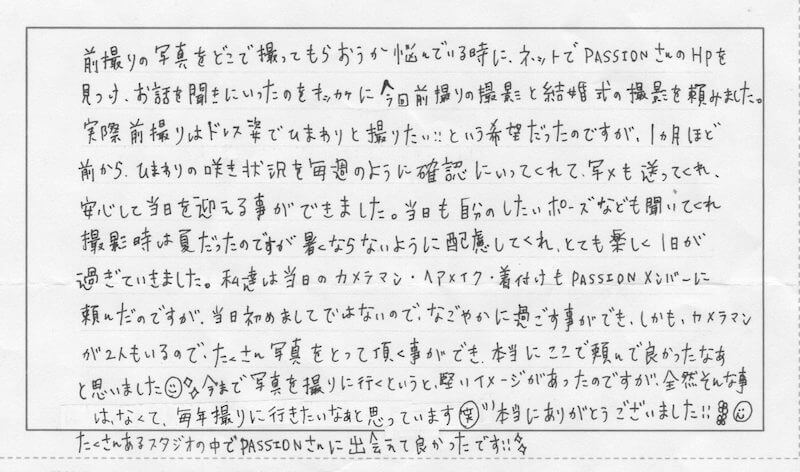 前撮りの写真をどこで撮ってもらおうか悩んでいる時に、ネットでPASSIONさんのHPを
見つけ、お話を聞きにいったのをキッカケに今回前撮りの撮影と結婚式の撮影を頼みました。
実際前撮りはドレス姿でひまわりと撮りたい!!という希望だったのですが、1ヵ月ほど
前から、ひまわりの咲き状況を毎週のように確認にいってくれて、写メも送ってくれ、
安心して当日を迎える事ができました。当日も自分のしたいポーズなども聞いてくれ
撮影時は夏だったのですが暑くならないように配慮してくれ、とても楽しく1日が
過ぎていきました。私達は当日のカメラマン・ヘアメイク・着付けもPASSIONメンバーに
頼んだのですが、当日初めましてではないので、なごやかに過ごす事ができ、しかも、カメラマン
が2人もいるので、たくさん写真をとって頂く事ができ、本当にここで頼んで良かったなぁ
と思いました☺今まで写真を撮りに行くというと、堅いイメージがあったのですが、全然そんな事
は、なくて、毎年撮りに行きたいなぁと思っています(笑)本当にありがとうございました!!
たくさんあるスタジオの中でPASSIONさんに出会えて良かったです!!